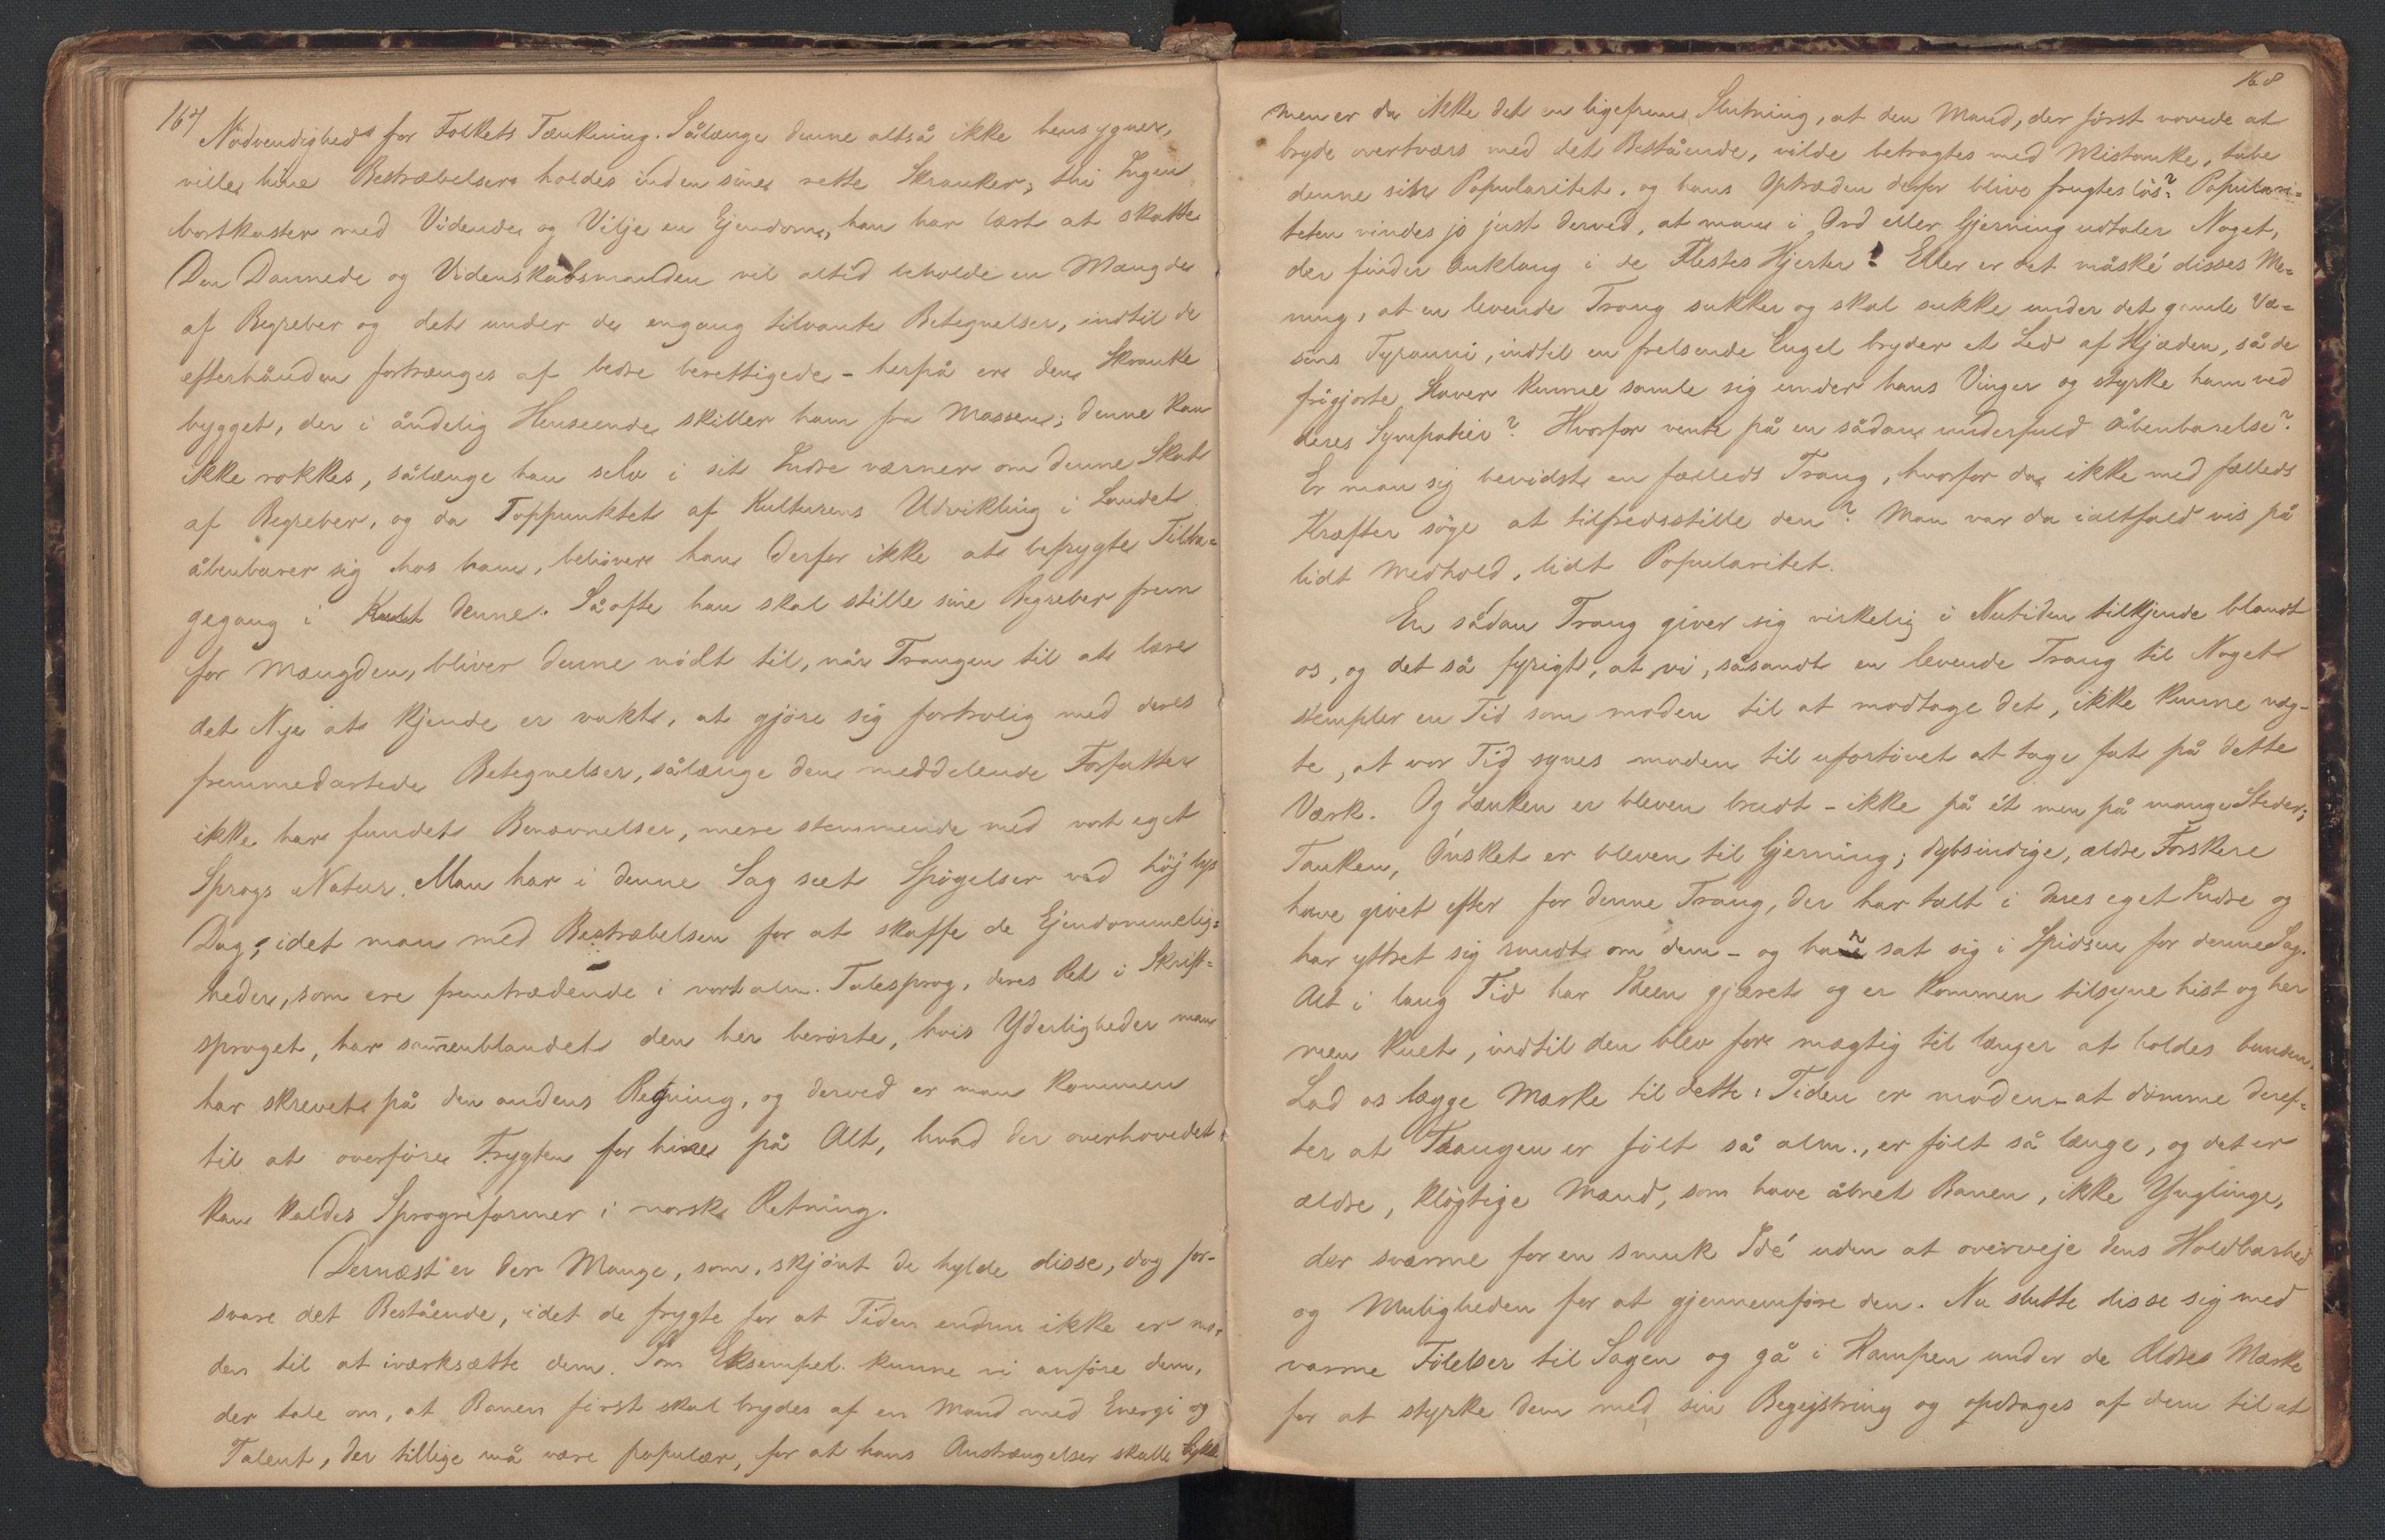 167
Nødvendighed for Folkets Tænkning. Sålænge denne altså ikke hensygner,
ville hine Bestræbelser holdes inden sine rette Skranker; thi Ingen
bortkaster med Vidende og Vilje en Ejendom, han har lært at skatte
Den Dannede og Videnskabsmanden vil altid beholde en Mængde
af Begreber og det under de engang tilvante Betegnelser, indtil de
efterhånden fortrænges af bedre berettigede – herpå er den Skranke
bygget, der i åndelig Henseende skiller ham fra Massen; denne kan
ikke rokkes, sålænge han selv i sit Indre værner om denne Skat
af Begreber, og da Toppunktet af Kulturens Udvikling i Landet
åbenbarer sig hos ham, behøver han derfor ikke at befrygte Tilba-
gegang i denne. Såofte han skal stille sine Begreber frem
for Mængden, bliver denne nödt til, når Trangen til at lære
det Nye at kjende er vakt, at gjöre sig fortrolig med deres
fremmedartede Betegnelser, sålænge den meddelende Forfatter
ikke har fundet Benævnelser, mere stemmende med vort eget
Sprogs Natur. Man har i denne Sag seet Spögelser ved höjlys
Dag; idet man med Bestræbelsen for at skaffe de Ejendommelig=
heder, som ere fremtrædende i vort alm. Talesprog, deres Ret i Skrift=
sproget, har sam̅enblandet den her berörte, hvis Yderligheder man
har skrevet på den andens Regning, og derved er man kommen
til at overföre Frygten for hine på Alt, hvad der overhovedet
kan kaldes Sprogreformer i norsk Retning.
Dernæst er der Mange, som, skjönt de hylde disse, dog for-
svare det Bestående, idet de frygte for at Tiden endnu ikke er mo-
den til at iværksætte dem. Som Eksempel kunne vi anföre dem,
der tale om, at Banen först skal brydes af en Mand med Energi og
Talent, der tillige må være populær, for at hans Anstrængelser skulle lykkes
168
men er da ikke det en ligefrem Slutning, at den Mand, der först vovede at
bryde overtværs med det Bestående, vilde betragtes med Mistanke, tabe
denne sin Popularitet, og hans Optræden derfor blive frugteslös? Populari=
teten vindes jo just derved, at man i Ord eller Gjerning udtaler Noget,
der finder Anklang i de Flestes Hjerter! Eller er det måské disses Me=
ning, at en levende Trang sukker og skal sukke under det gamle Væ=
sens Tyranni, indtil en frelsende Engel bryder et Led af Kjæden, så de
frigjorte Slaver kunne samle sig under hans Vinger og styrke ham ved
deres Sympatier? Hvorfor vente på en sådan underfuld Åbenbarelse?
Er man sig bevidst en fælleds Trang, hvorfor da ikke med fælleds
Kræfter söge at tilfredsstille den? Man var da ialtfald vis på
lidt Medhold, lidt Popularitet.
En sådan Trang giver sig virkelig i Nutiden tilkjende blandt
os, og det så fyrigt, at vi, såsandt en levende Trang til Noget
stempler en Tid som moden til at modtage det, ikke kunne næg-
te, at vor Tid synes moden til ufortövet at tage fat på dette
Værk. Og Lænken er bleven brudt – ikke på ét men på mange Steder;
Tanken, Önsket er bleven til Gjerning; dybsindige, ældre Forskere
have givet efter for denne Trang, der har talt i deres eget Indre og
har yttret sig rundt om dem – og have sat sig i Spidsen for denne Sag.
Alt i lang Tid har Ideen gjæret og er kommen tilsyne hist og her
men kuet, indtil den blev for mægtig til længer at holdes bunden.
Lad os lægge Mærke til dette: Tiden er moden – at dömme deref-
ter at Trangen er fölt så alm., er fölt så længe, og det er
ældre, klögtige Mænd, som have åbnet Banen, ikke Ynglinge,
der sværme for en smuk Idé uden at overveje dens Holdbarhed
og Muligheden for at gjennemföre den. Nu slutte disse sig med
varme Fölelser til Sagen og gå i Kampen under de Ældres Mærke
for at styrke dem med sin Begejstring og opdrages af dem til at